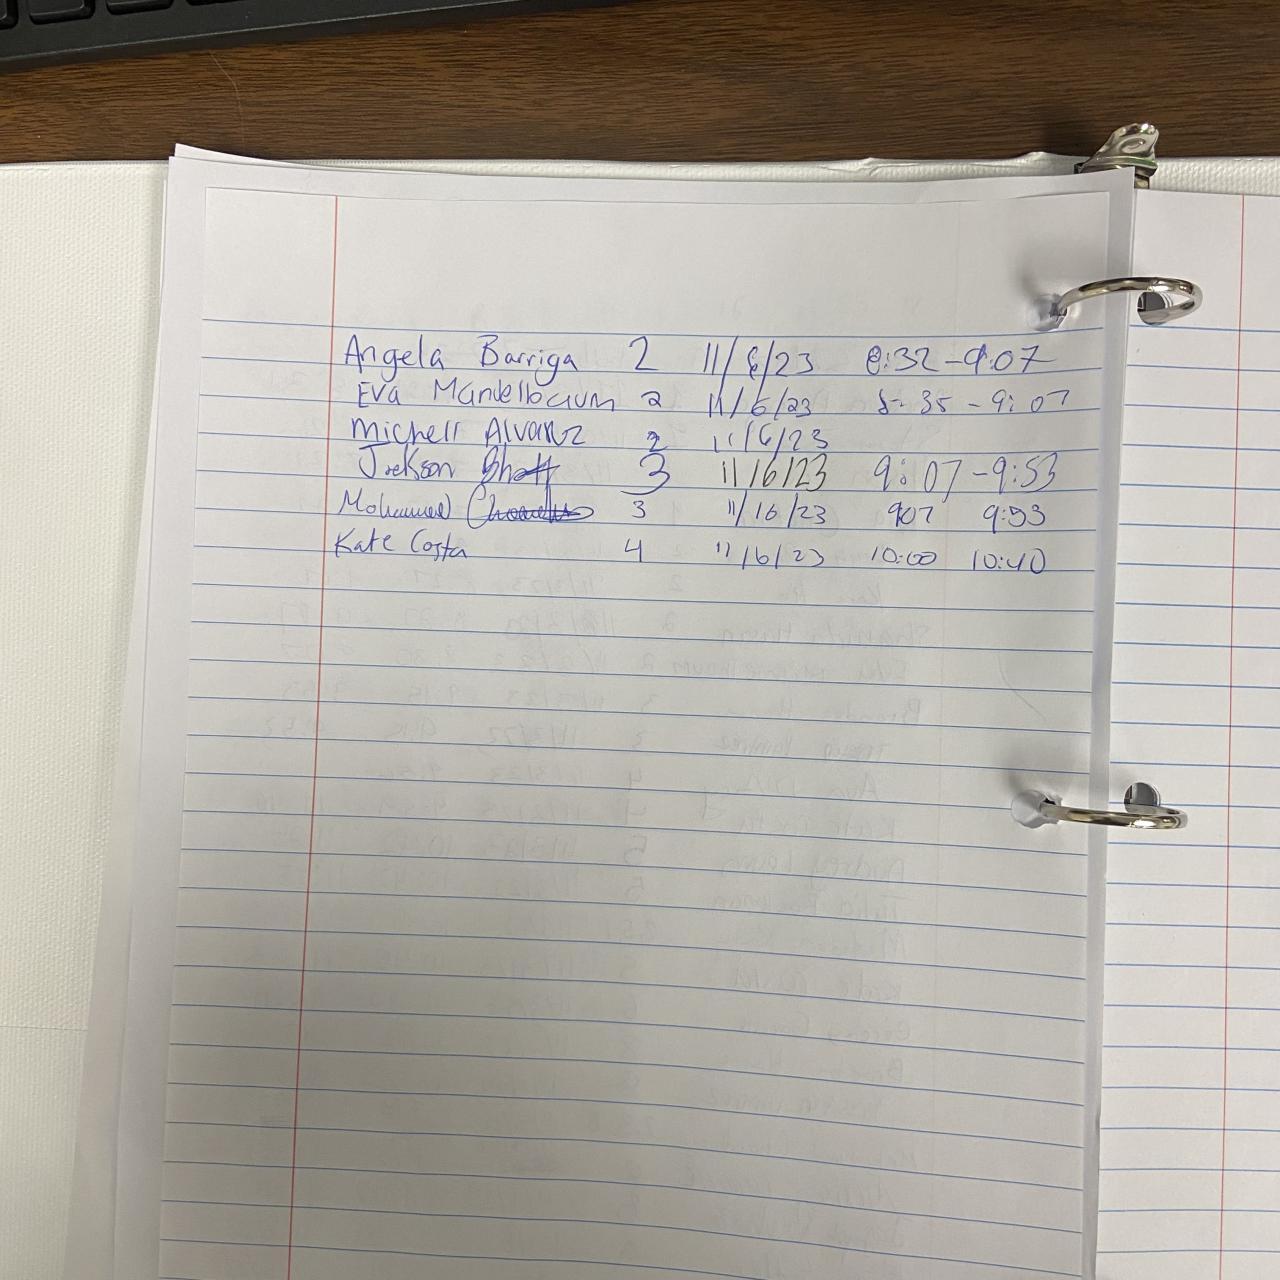 Angela Barriga 2 11/6/23 8:32-9:07
Eva Mandelbaum 2 11/6/23 8:35 - 9:07
Michell Alvarez 2 11/6/23
Jackson Bhatt 3 11/6/23 9:07-9:53
Mohammed 3 11/16/23 907 9:53
Kate Costa 4 11/6/23 10:00 10:40